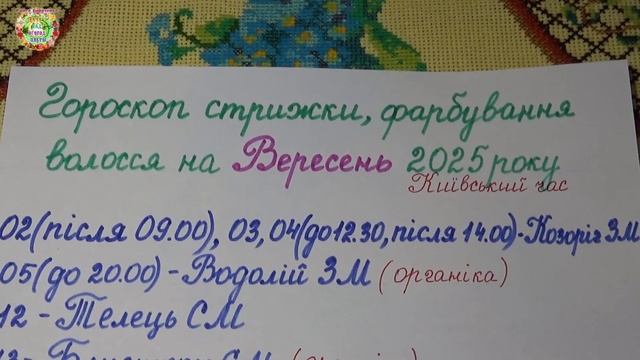 Гороскоп стрижки, фарбування
волосся на Вересень 2025 року
Київський час
02(після 09.00), 03, 04(до 12.30, після 14.00)-Козоріг ЗМ
05(до 20.00)-Водолій ЗМ (органіка)
12-Телець СМ